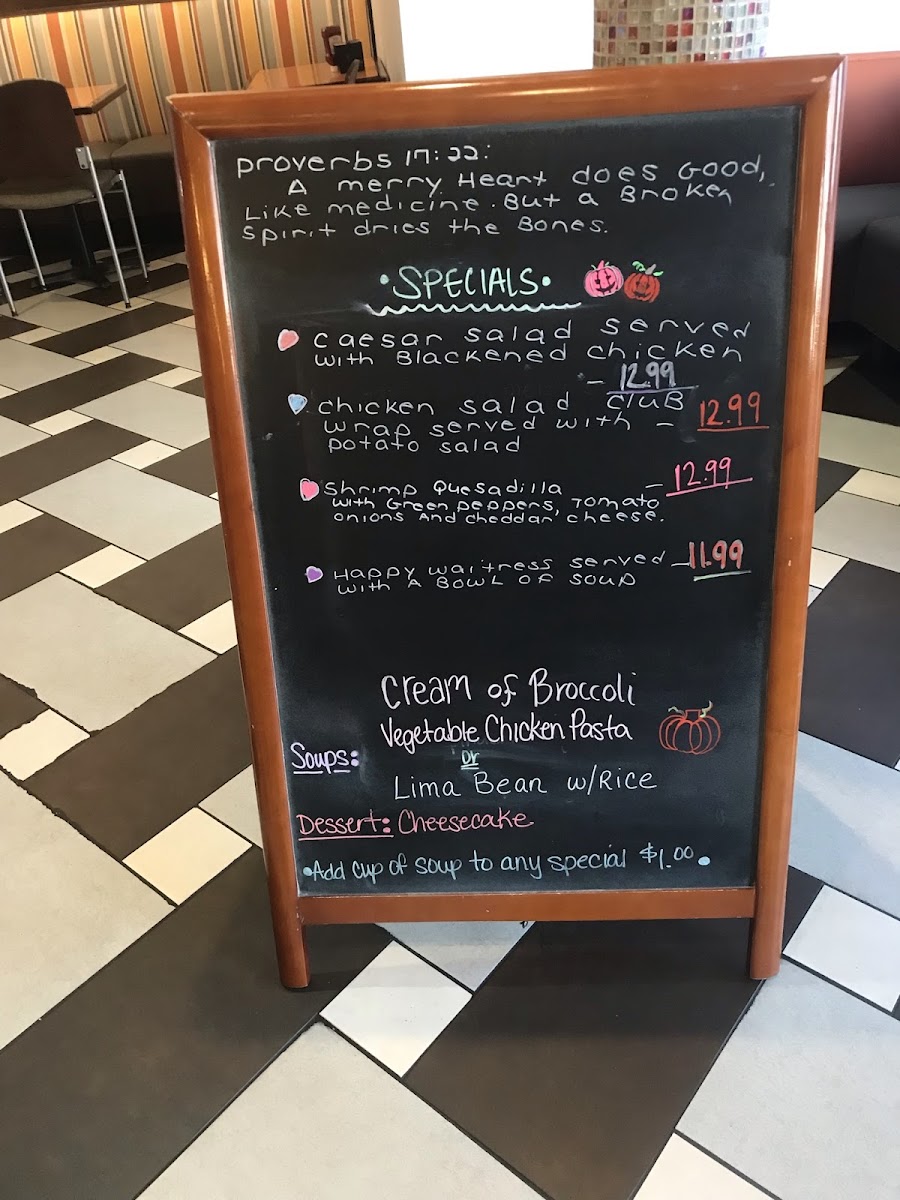 Proverbs 17:22:
A merry Heart does Good,
Like medicine. But a Broken
Spirit dries the Bones.
•SPECIALS•
Caesar salad served
with Blackened chicken
- 12.99
chicken salad club
wrap served with - 12.99
potato salad
Shrimp Quesadilla - 12.99
with Green peppers, Tomato
onions And cheddar cheese.
Happy waitress served - 11.99
with A Bowl of soup
Cream of Broccoli
Vegetable Chicken Pasta
Soups: or
Lima Bean w/Rice
Dessert: Cheesecake
•Add cup of soup to any special $1.00•